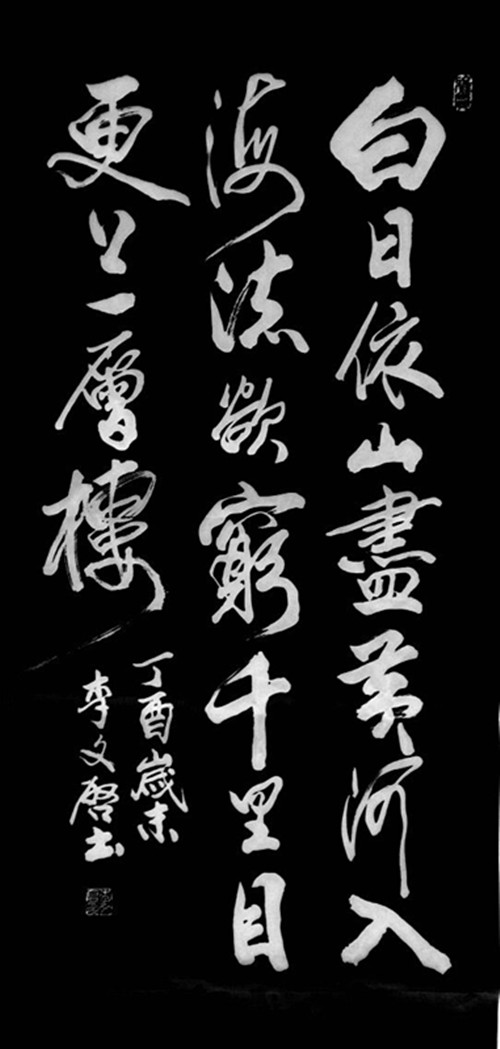 白日依山盡黄河入
海流欲窮千里目
更上一層樓
丁酉歲末
李文啓書